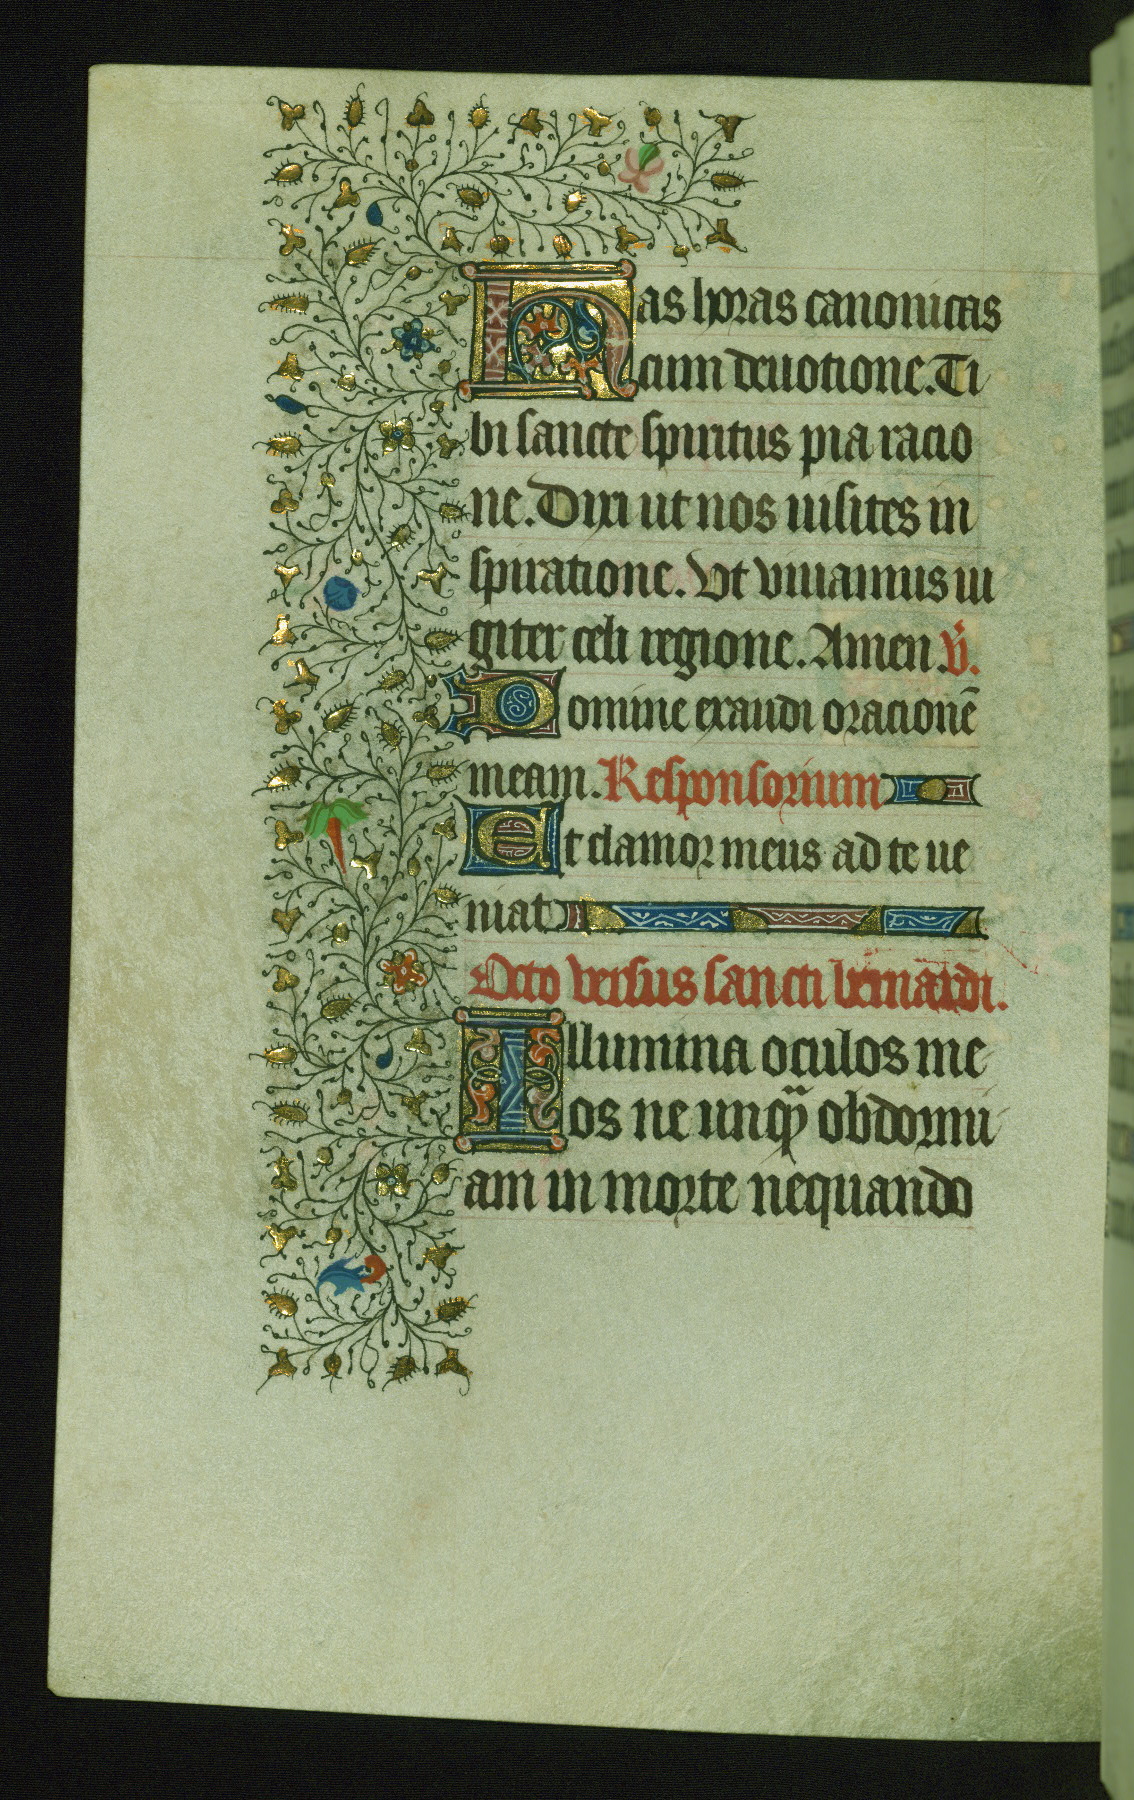 Has horas canonicas
cum deuotione. Ti
bi sancte spiritus pia racio
ne. Dixi ut nos uisites in
spiratione. Vt viuamus iu
giter celi regione. Amen. v̄.
Domine exaudi oracionē
meam. Responsorium
Et clamor meus ad te ue
niat
Octo versus sancti bernardi.
Illumina oculos me
os ne unqȝ obdormi
am in morte nequando